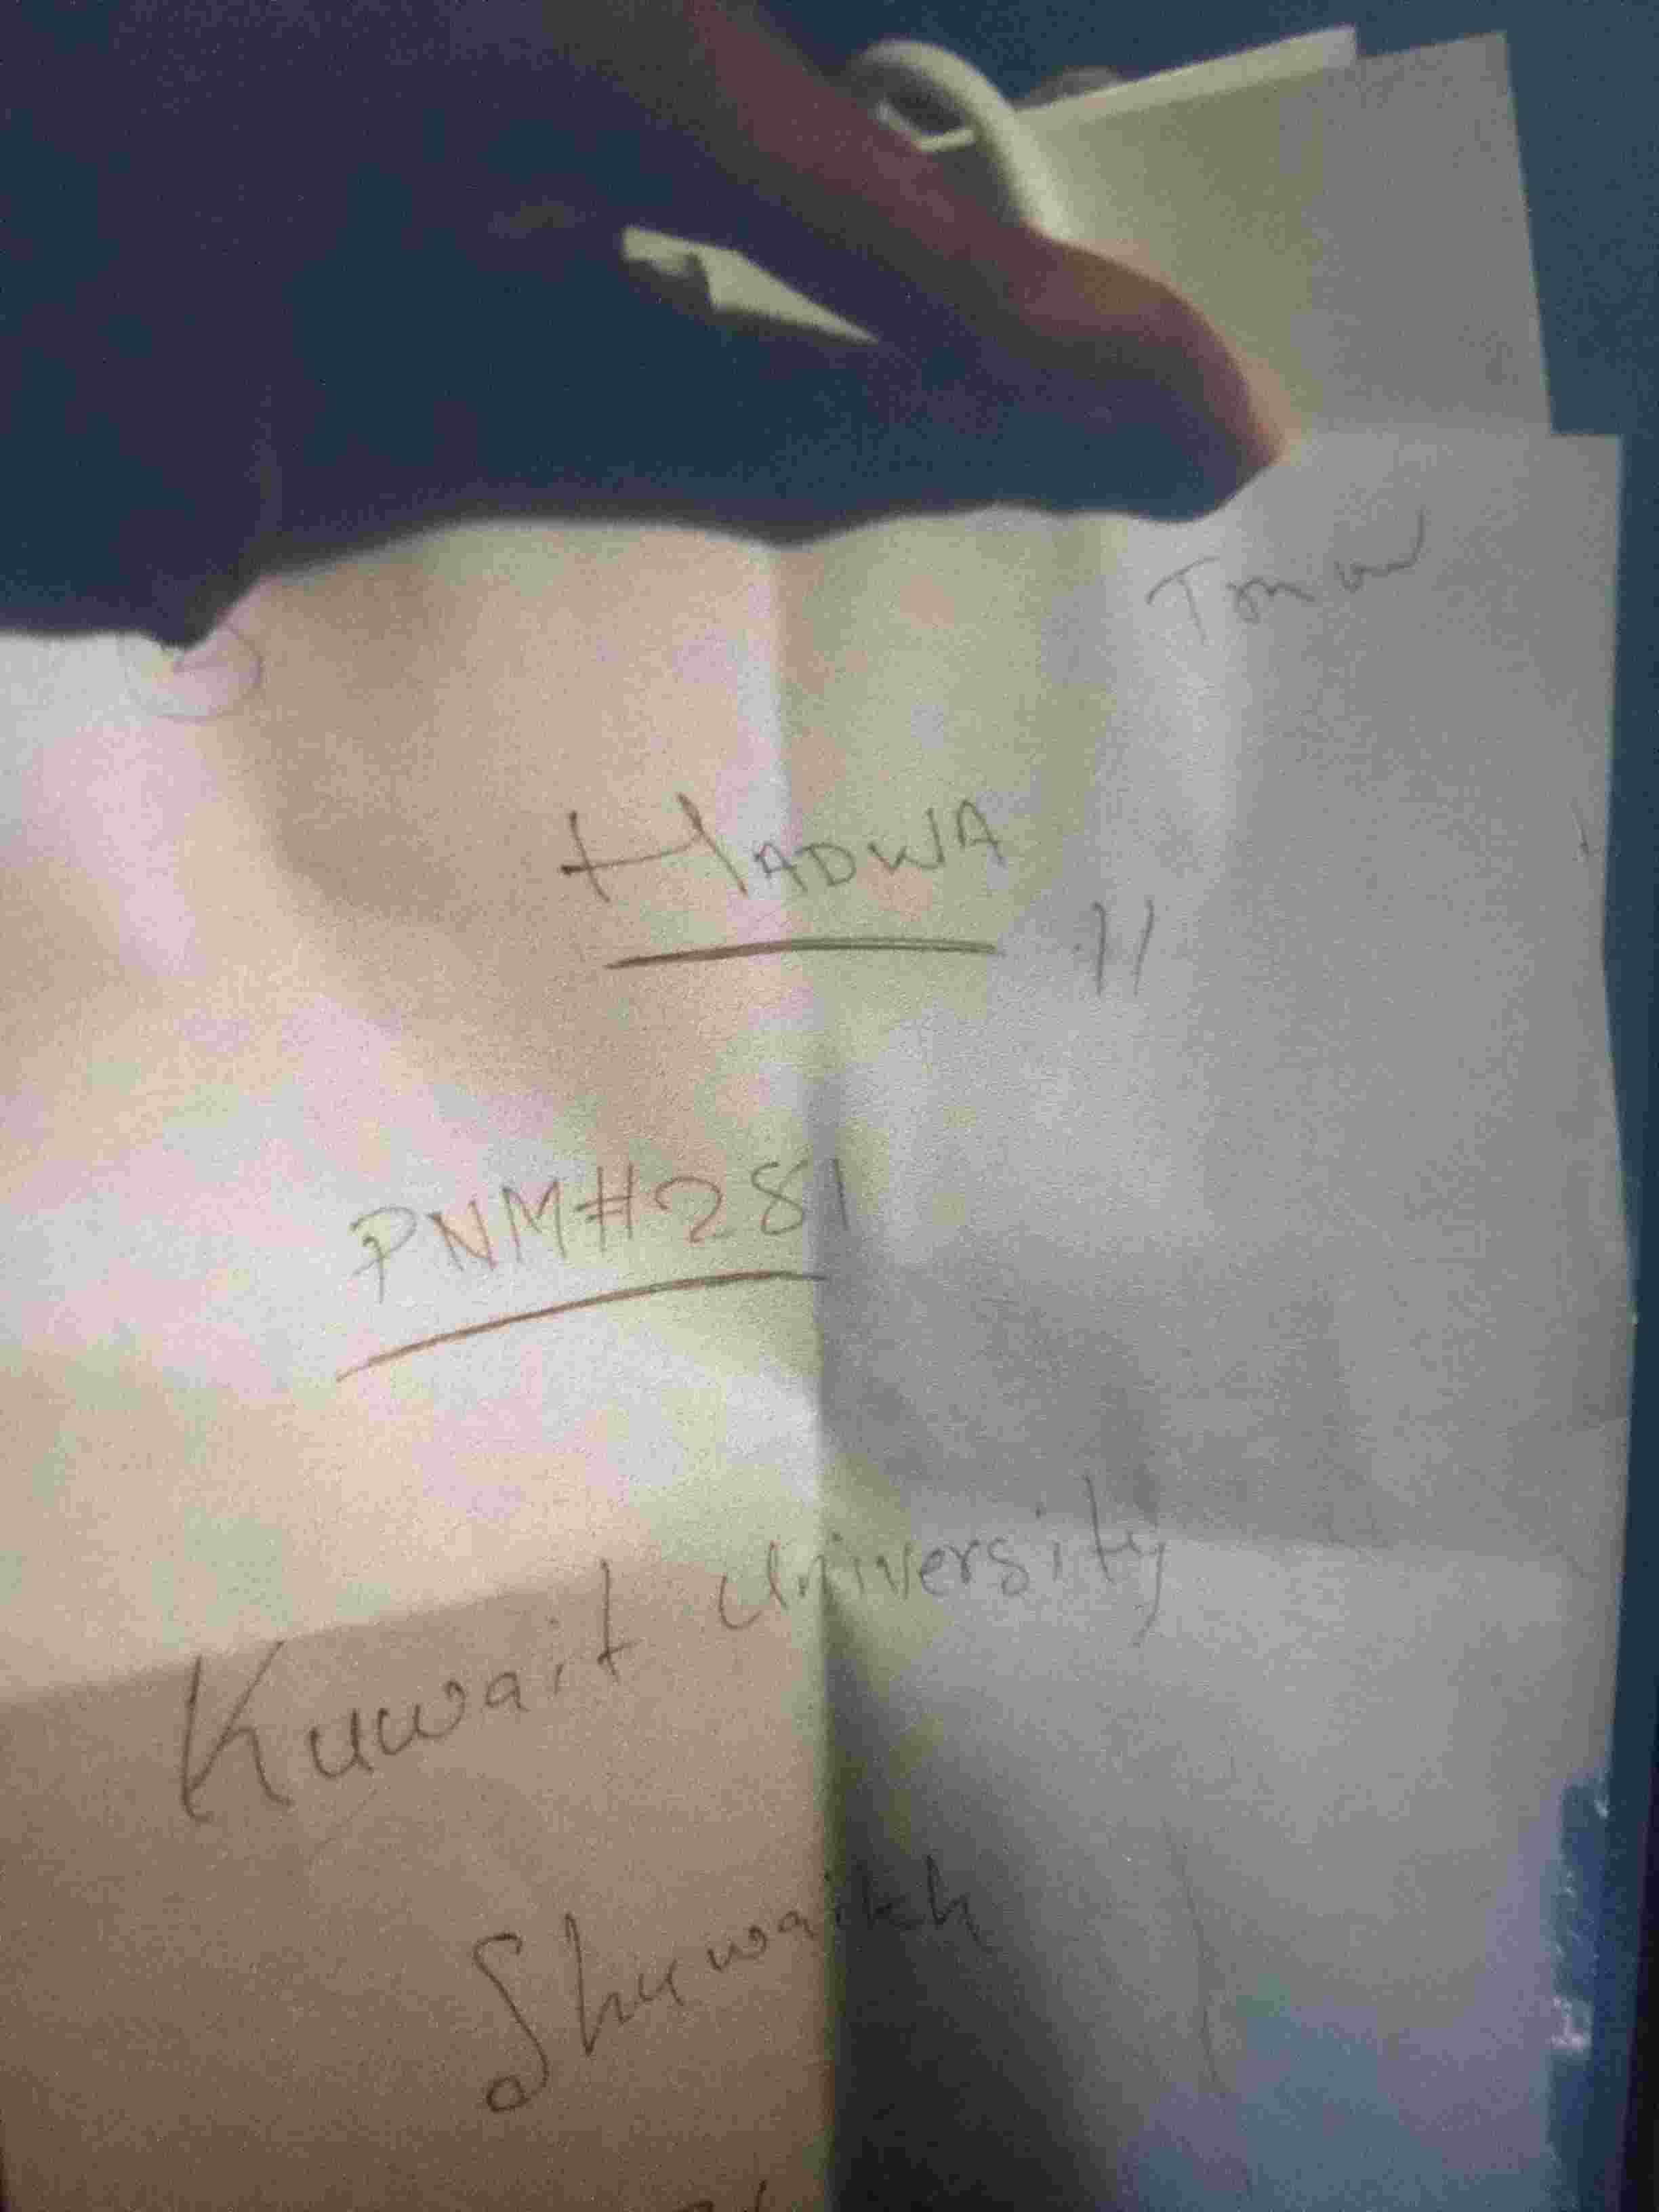 Tmw
HADWA
11
PNM#281
Kuwait University
Shuwaikh